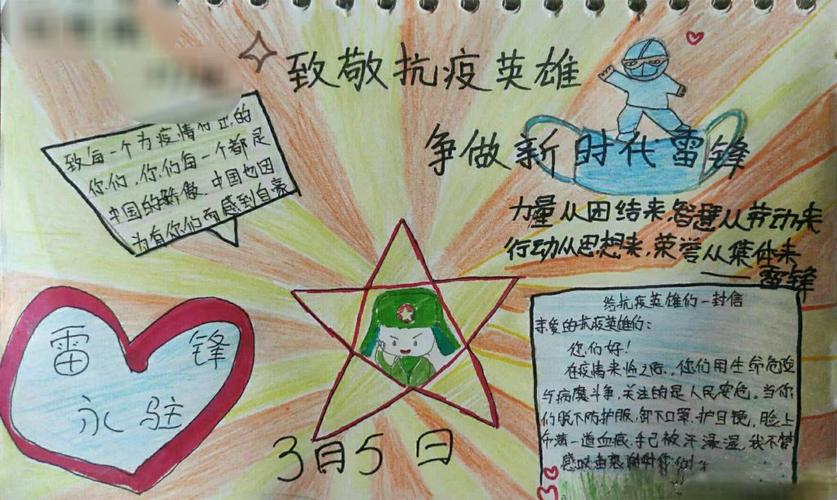 致敬抗疫英雄
争做新时代雷锋
致每一个为疫情付出的
你们，你们每一个都是
中国的骄傲，中国也因
为有你们而感到自豪
力量从团结来，智慧从劳动来
行动从思想来，荣誉从集体来
——雷锋
雷锋
永驻
3月5日
给抗疫英雄们一封信
亲爱的抗疫英雄们：
您们好！
在疫情来临之际，你们用生命危险
与病魔斗争，关注的是人民安危，当你
们脱下防护服，卸下口罩、护目镜，脸上
一道血痕，手已被汗湿，我不禁
感叹